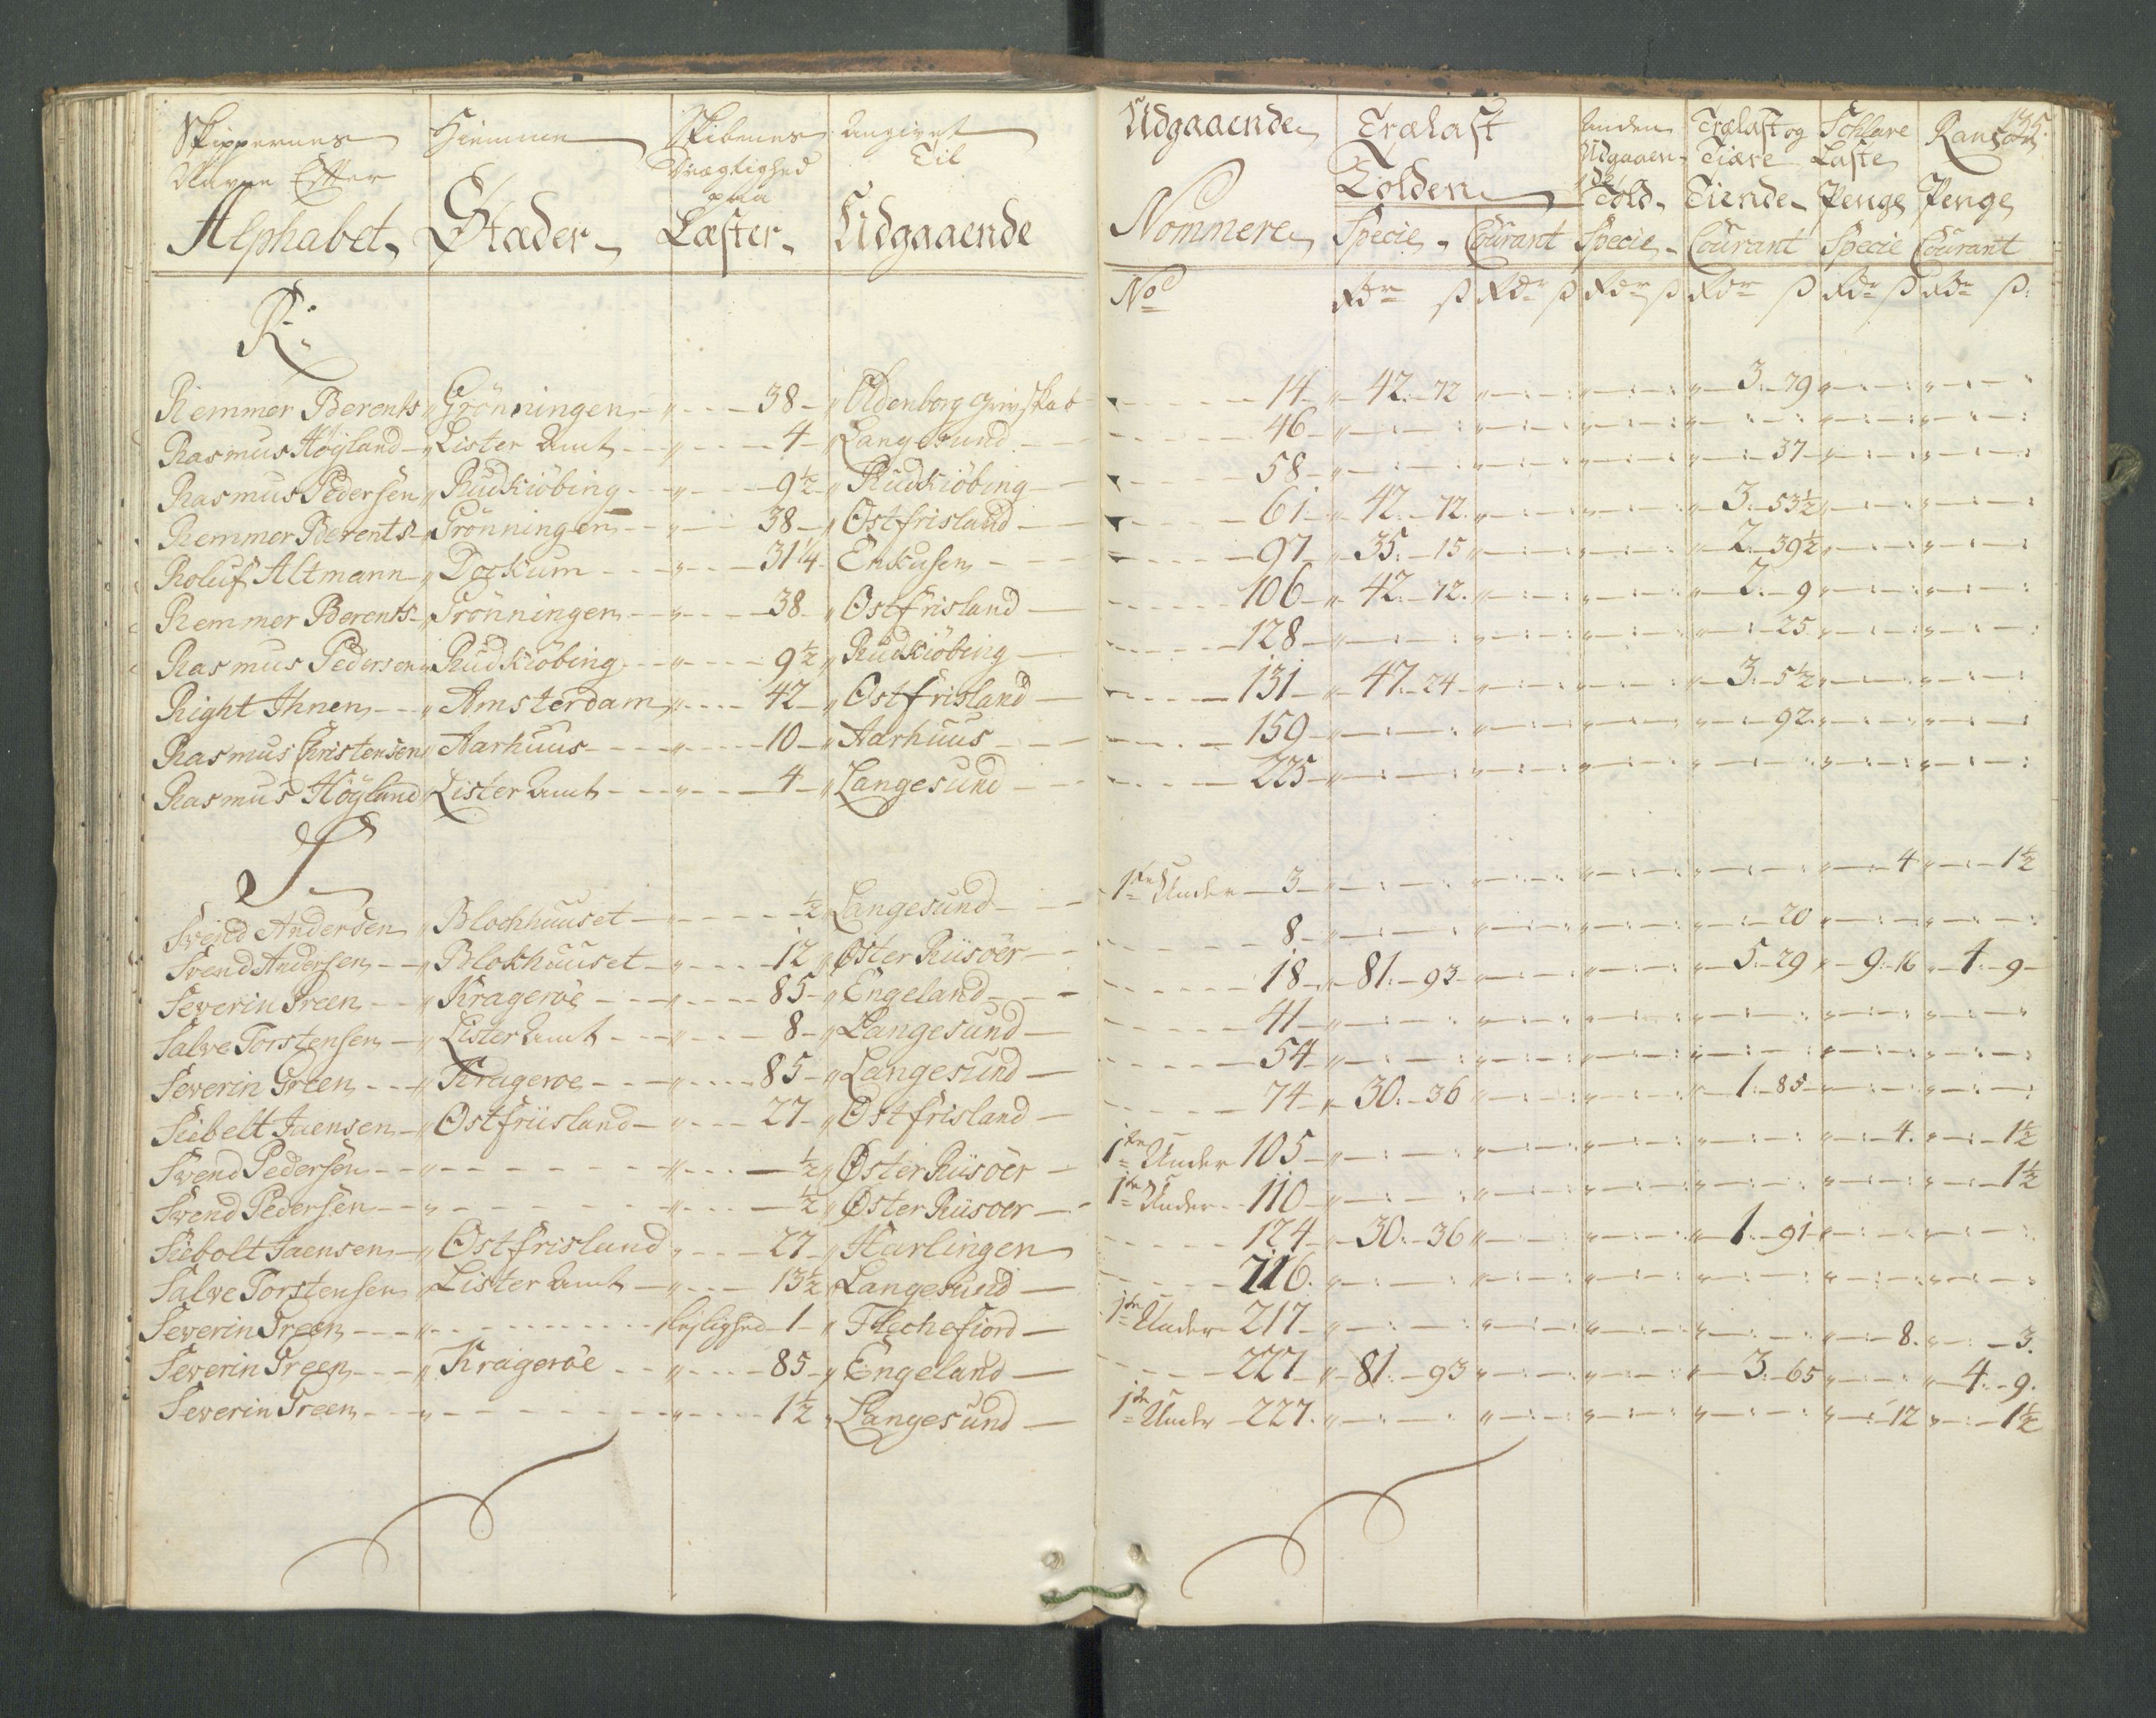 Skippernes Navne Efter Alphabet
Hiemme Stæder
Skibenes Drægtighed paa Læster
Angivet Til Udgaaende
Udgaaende Nommere
Trælast Tolden Specie Courant
Anden Udgaaende Told Specie
Trælast og Tiære Tiende Courant
Laste Penge Specie
Penge Courant
135.
No Rdr ß Rdr ß Rdr ß Rdr ß Rdr ß Rdr ß
R:
Remmer Berents Grönningen 38 Oldenborg 14 42 72 3 79
Rasmus Höyland Lister Amt 4 Langesund 46
Rasmus Pedersen Rudkiöbing 9 1/2 Rudkiöbing 58 37
Remmer Berents Grönningen 38 Ostfrisland 61 42 72 3 53 1/2
Roluf Altmann Dockum 31 1/4 Enkusen 97 35 15 2 39 1/2
Remmer Berents Grönningen 38 Ostfrisland 106 42 72 2 9
Rasmus Pedersen Rudkiöbing 9 1/2 Rudkiöbing 128 25
Right Ihnen Amsterdam 42 Ostfrisland 131 47 24 3 5 1/2
Rasmus Christensen Aarhuus 10 Aarhuus 159 92
Rasmus Höyland Lister Amt 4 Langesund 225
S
Svend Andersen Blochhuuset 1/2 Langesund Under 3 4 1 1/2
Svend Andersen Blokhuuset 12 Øster Riisöer 8 20
Severin Green Krageröe 85 Engeland 18 81 93 5 29 9 16 4 9
Salve Torstensen Lister Amt 8 Langesund 41
Severin Green Krageroe 85 Langesund 54
Siebelt Jaensen Ostfriisland 27 Ostfrisland 74 30 36 1 85
Svend Pedersen 1/2 Øster Riisöer Under 105 4 1 1/2
Svend Pedersen 1/2 Øster Riisoer Under 110 1 1/2
Siebolt Jaensen Ostfrisland 27 Harlingen 124 30 36 1 91
Salve Torstensen Lister Amt 13 1/2 Langesund 216
Severin Green 1 Flechefiord Under 217 8 3
Severin Green Krageröe 85 Engeland 227 81 93 3 65 4 9
Severin Green 1 1/2 Langesund Under 227 12 1 1/2